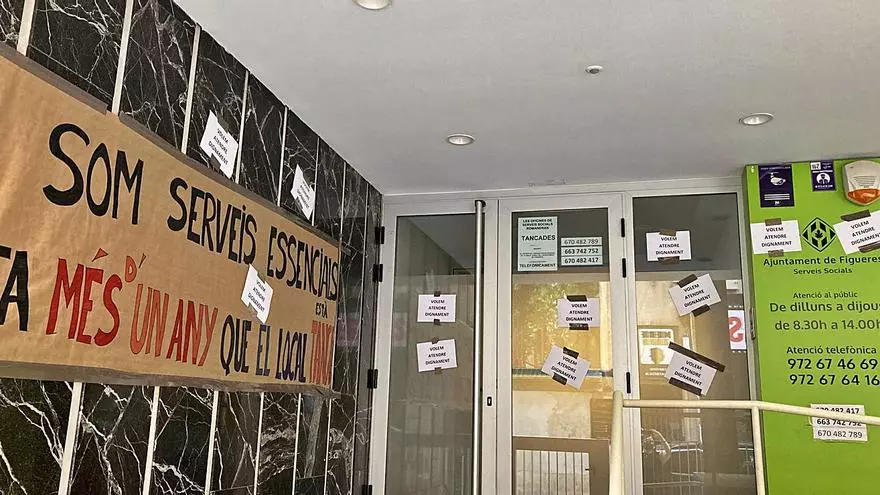 SOM SERVEIS ESSENCIALS
TA MÉS D'UN ANY QUE EL LOCAL ESTÀ
VOLEM
ATENDRE
DIGNAMENT
VOLEM
ATENDRE
DIGNAMENT
VOLEM
ATENDRE
DIGNAMENT
VOLEM
ATENDRE
DIGNAMENT
VOLEM
ATENDRE
DIGNAMENT
LES OFICINES DE
SERVEIS SOCIALS
ROMANDRAN
TANCADES
TELEFONICAMENT
670 482 789
663 742 752
670 482 417
VOLEM
ATENDRE
DIGNAMENT
VOLEM
ATENDRE
DIGNAMENT
VOLEM
ATENDRE
DIGNAMENT
VOLEM
ATENDRE
DIGNAMENT
VOLEM
ATENDRE
DIGNAMENT
VOLEM
ATENDRE
DIGNAMENT
VOLEM
ATENDRE
DIGNAMENT
Ajuntament de Figueres
Serveis Socials
Atenció al públic
De dilluns a dijous
de 8.30h a 14.00h
Atenció telefònica
972 67 46 69
972 67 64 16
670 482 417
663 742 752
670 482 789